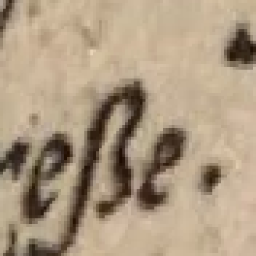 eße.